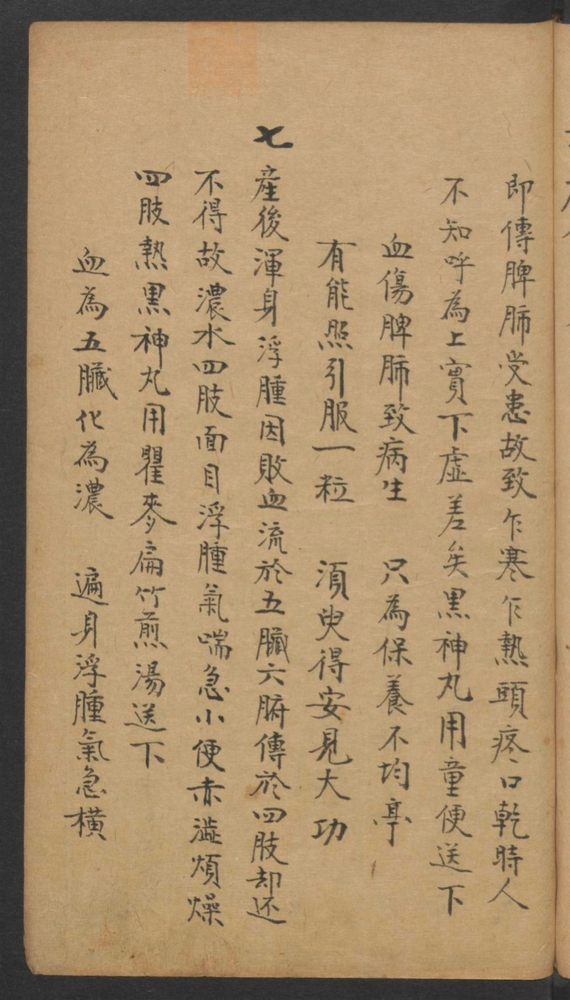 即傳脾肺受患故致乍寒乍熱頭疼口乾時人
不知呼為上實下虛差矣黑神丸用童便送下
血傷脾肺致病生　只為保養不均亭
有能照引服一粒　須臾得安見大功
七　產後渾身浮腫因敗血流於五臟六腑傳於四肢却还
不得故濃水四肢面目浮腫氣喘急小便赤澁煩燥
四肢熱黑神丸用瞿麥扁竹煎湯送下
血為五臟化為濃　遍身浮腫氣急橫